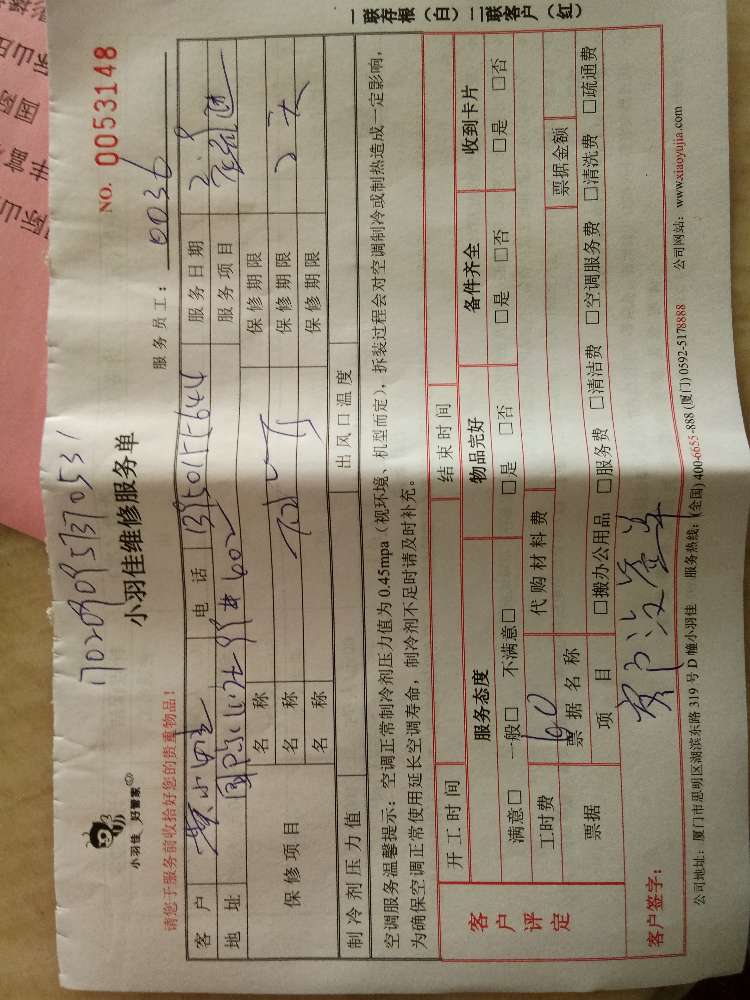 一联存根（白）二联客户（红）
NO. 0053148
1702090957370531
小羽佳 好管家
小羽佳维修服务单
服务员工： 0036
请您于服务前收拾好您的贵重物品！
客 户 电 话 服务日期 2.9
地 址 服务项目
保修项目
名 称 保修期限
名 称 保修期限
名 称 保修期限
制冷剂压力值 出风口温度
空调服务温馨提示：空调正常制冷剂压力值为 0.45mpa（视环境、机型而定），拆装过程会对空调制冷或制热造成一定影响，
为确保空调正常使用延长空调寿命，制冷剂不足时请及时补充。
开工时间 结束时间
客户评定
服务态度 物品完好 备件齐全 收到卡片
满意□ 一般□ 不满意□ □是 □否 □是 □否 □是 □否
工时费 60 代购材料费
票据 票据名称 票据金额
项 目 □搬办公用品 □服务费 □清洁费 □空调服务费 □清洗费 □疏通费
客户签字：
公司地址：厦门市思明区湖滨东路 319 号 D 幢小羽佳 服务热线：(全国) 400-6655-888 (厦门) 0592-5178888 公司网站：www.xiaoyujia.com